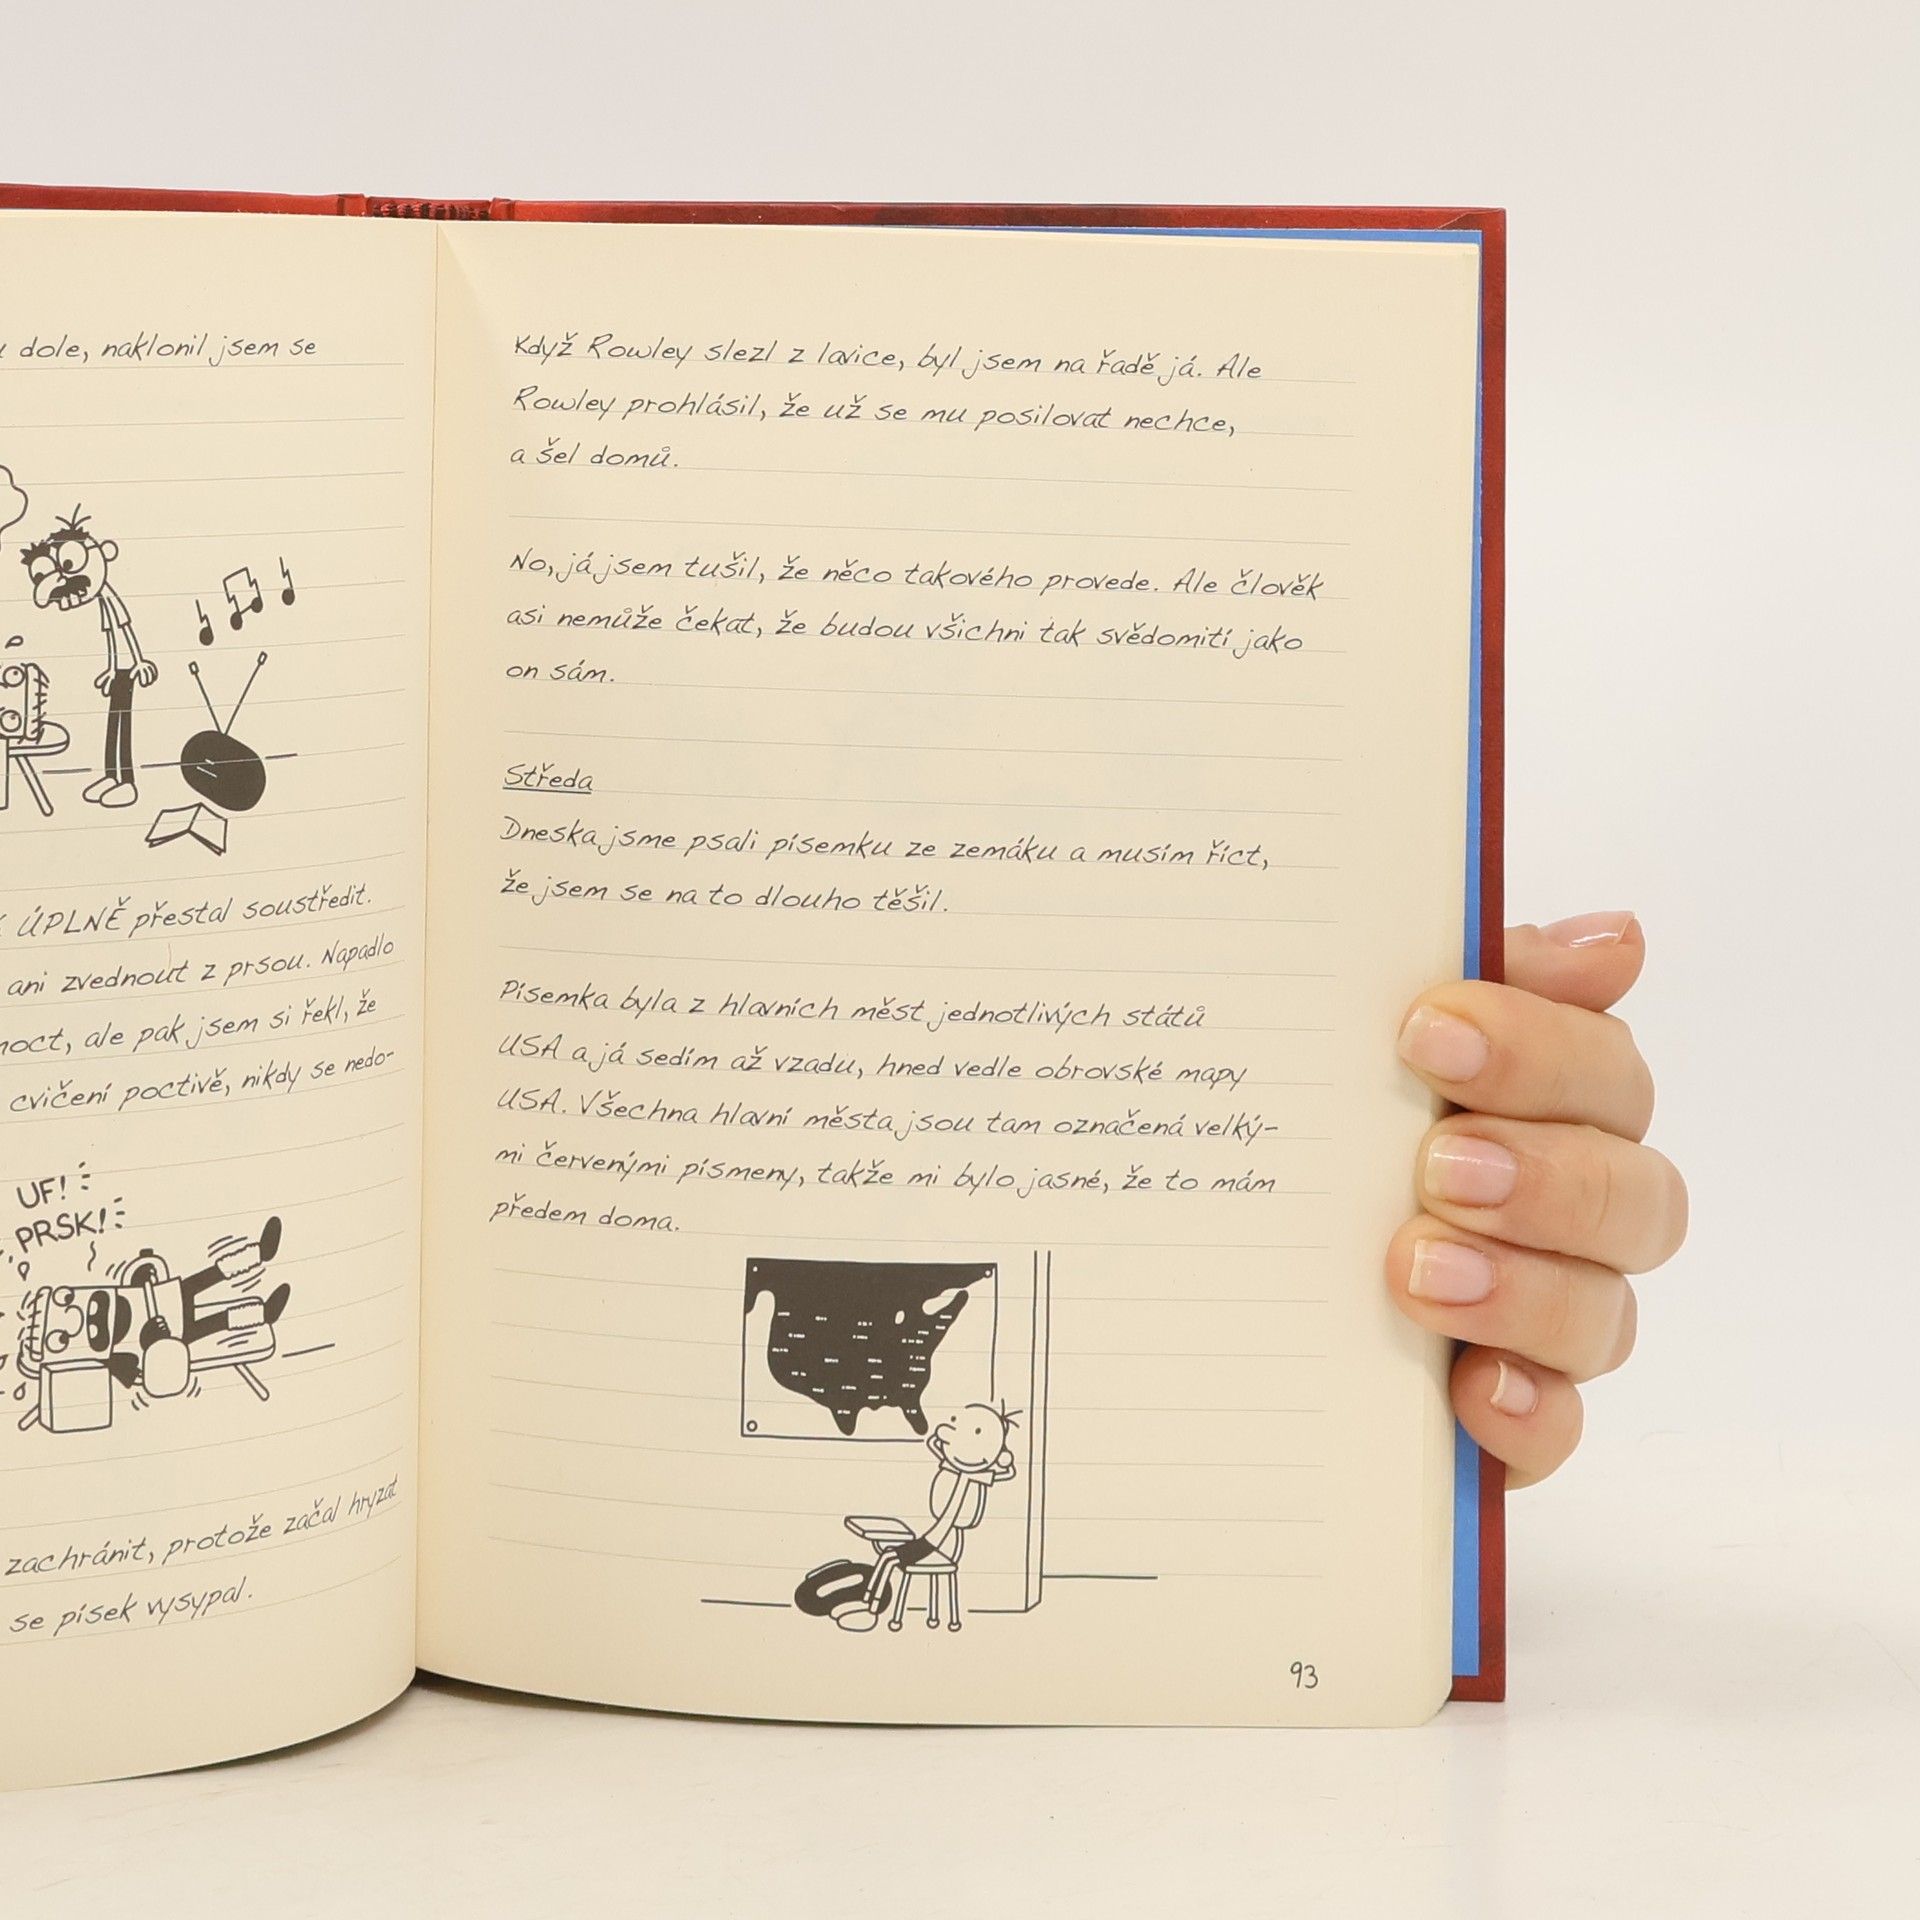 dole, naklonil jsem se
ÚPLNĚ přestal soustředit.
ani zvednout z prsou. Napadlo
moct, ale pak jsem si řekl, že
cvičení poctivě, nikdy se nedo-
UF!
PRSK!
zachránit, protože začal hryzat
se písek vysypal.
Když Rowley slezl z lavice, byl jsem na řadě já. Ale
Rowley prohlásil, že už se mu posilovat nechce,
a šel domů.
No, já jsem tušil, že něco takového provede. Ale člověk
asi nemůže čekat, že budou všichni tak svědomití jako
on sám.
Středa
Dneska jsme psali písemku ze zemáku a musím říct,
že jsem se na to dlouho těšil.
Písemka byla z hlavních měst jednotlivých států
USA a já sedím až vzadu, hned vedle obrovské mapy
USA. Všechna hlavní města jsou tam označená velký-
mi červenými písmeny, takže mi bylo jasné, že to mám
předem doma.
93